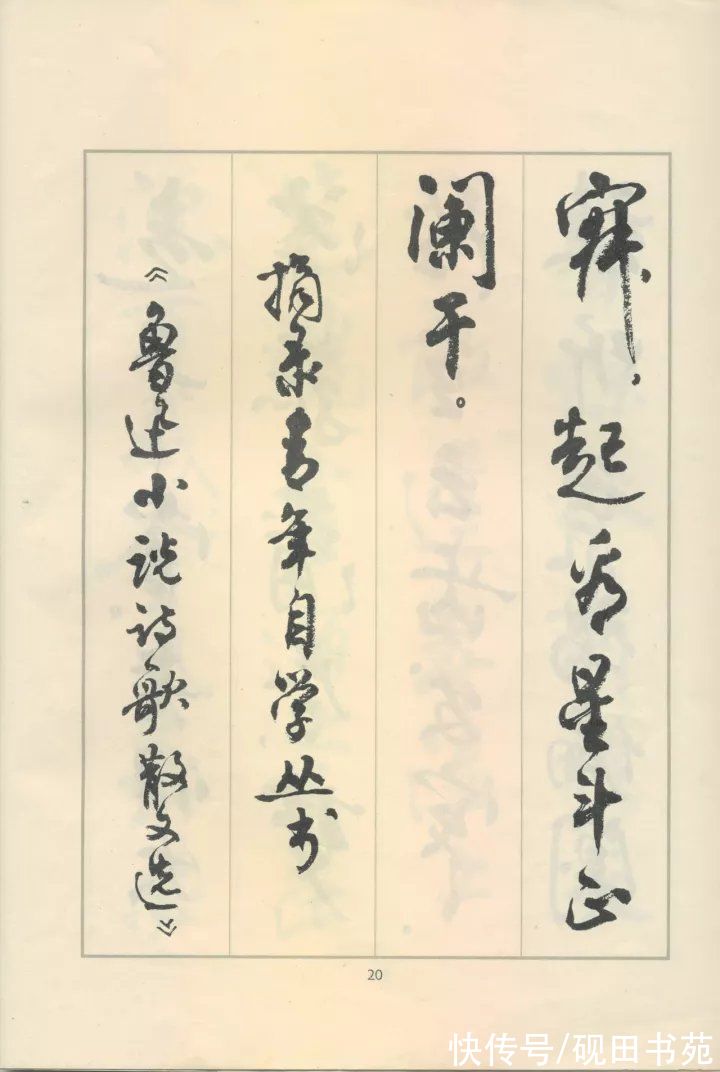 寐，起看星斗正
阑干。
摘录青年自学丛书
《鲁迅小说诗歌散文选》
20
快传号/砚田书苑